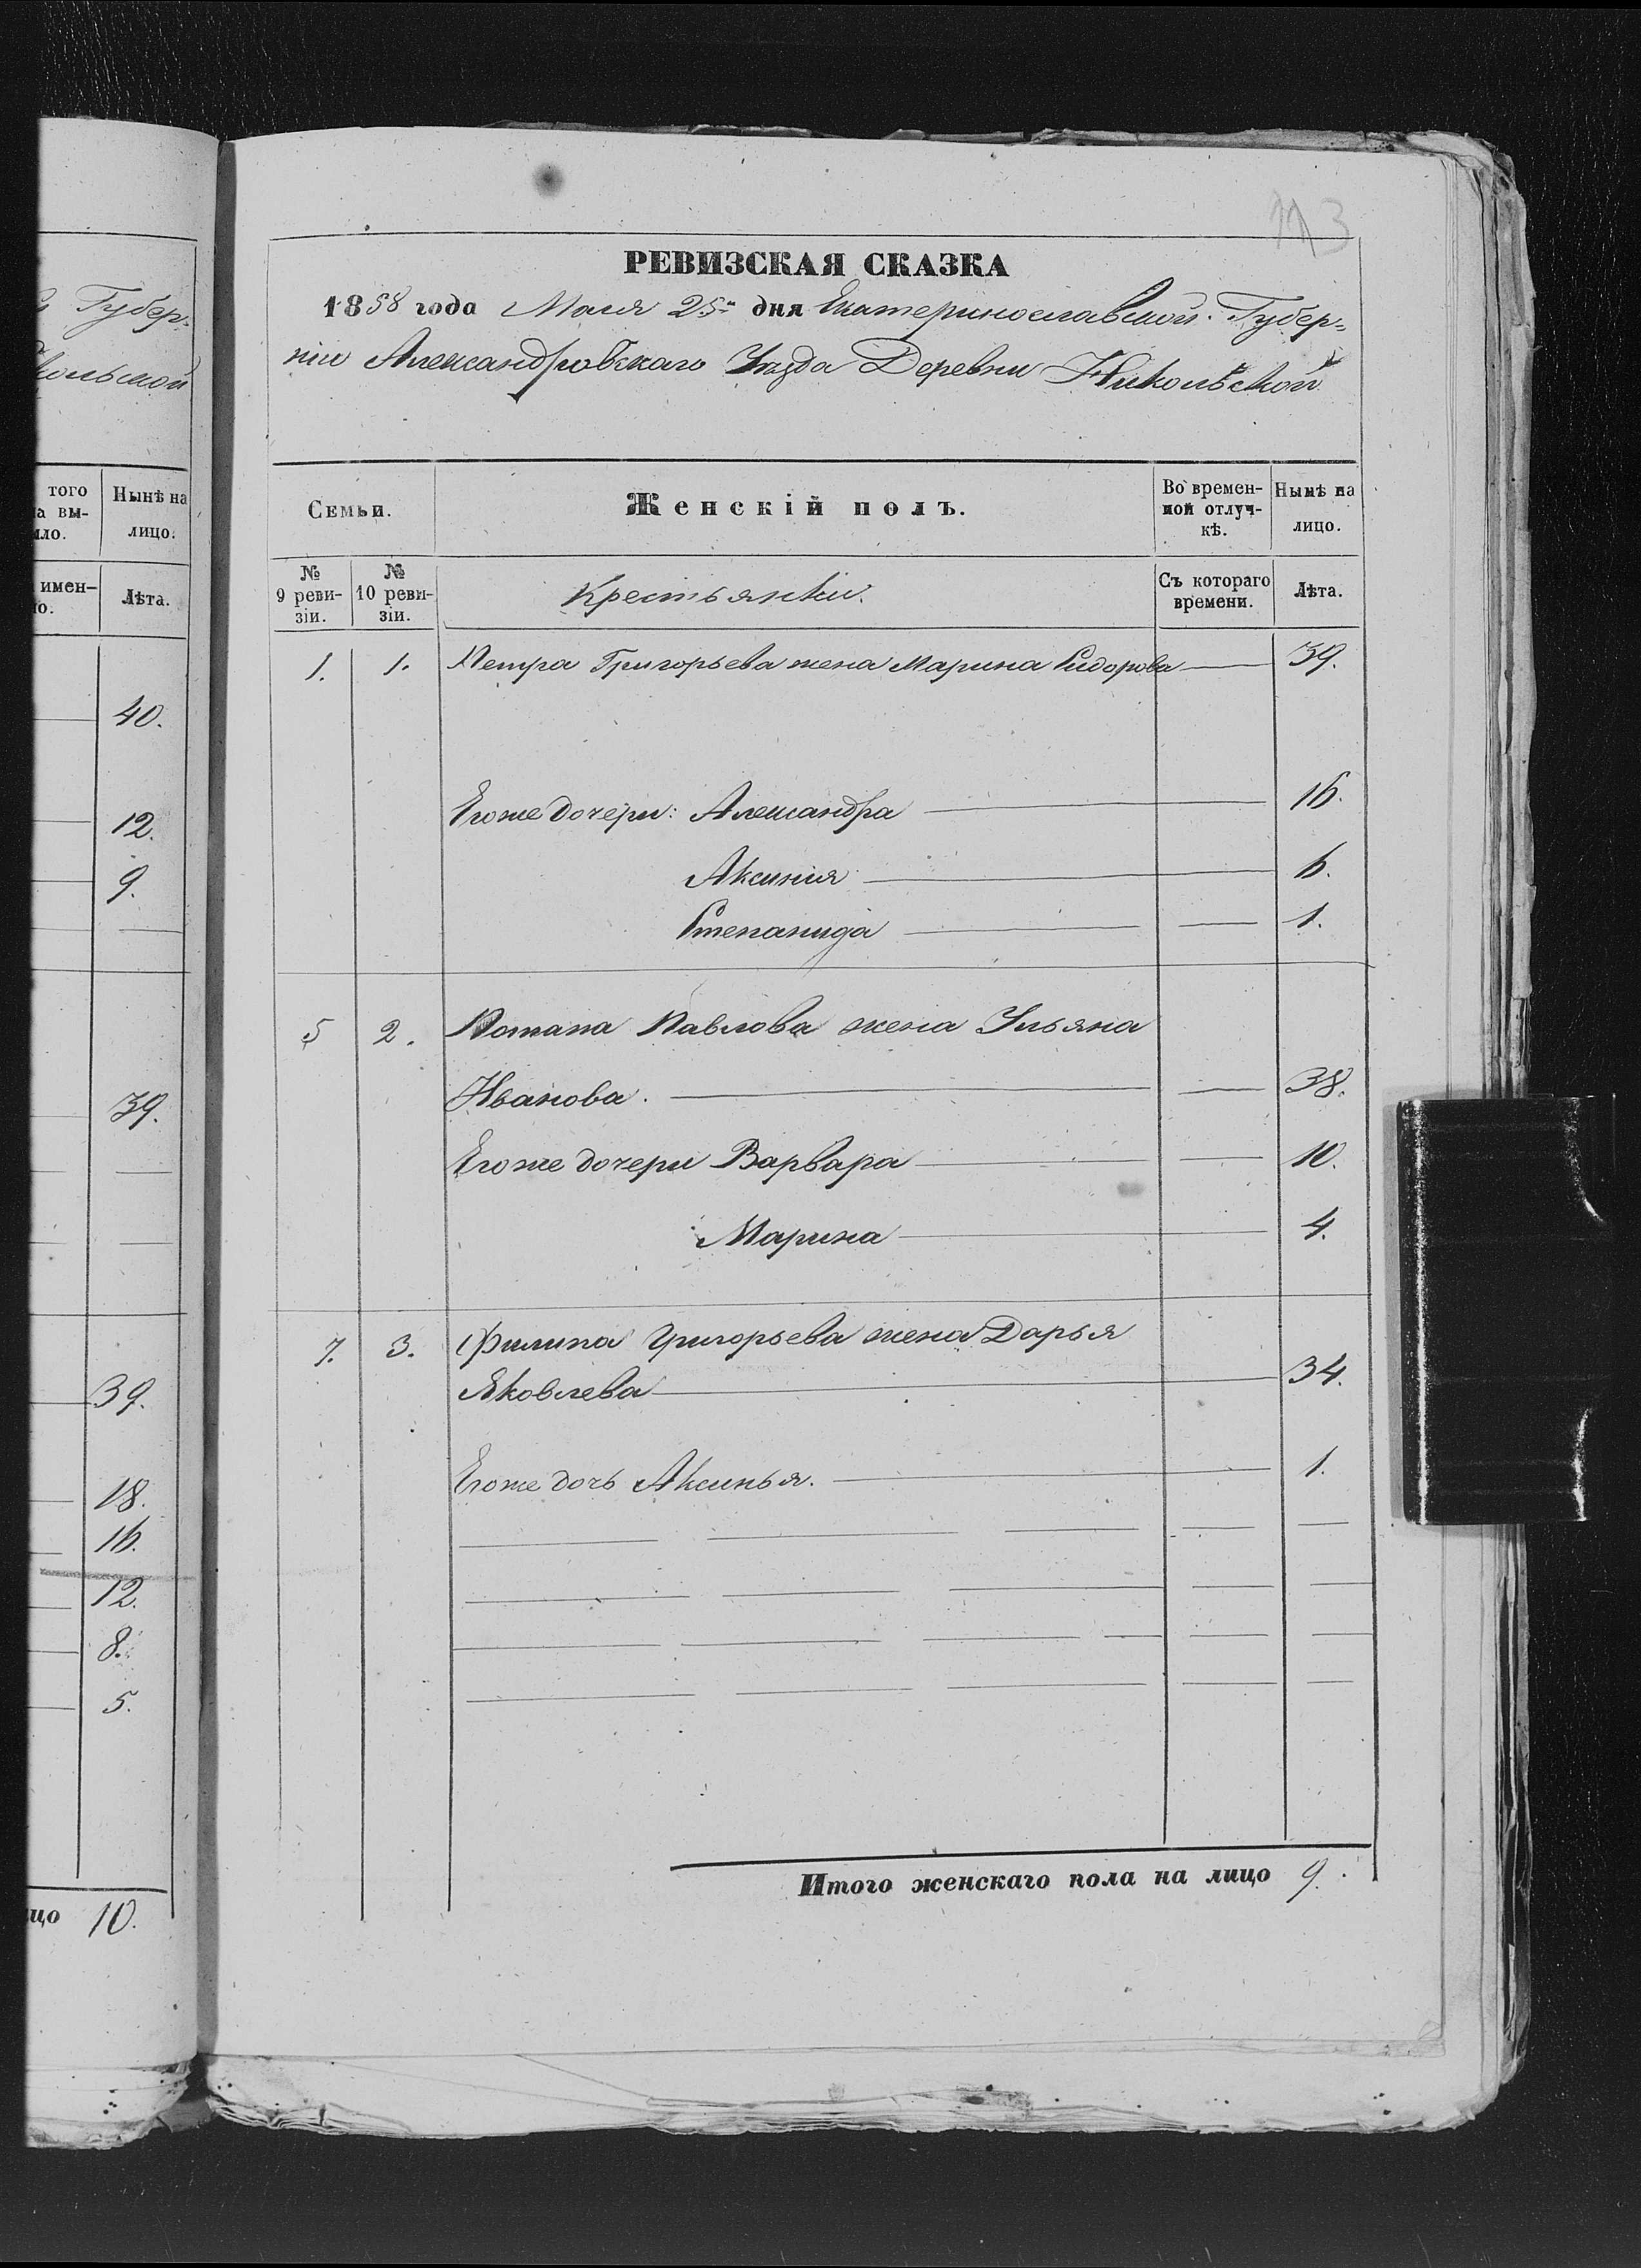 с Губер-
кольской
того
на вы-
ыло.
Нынѣ на
лицо.
имен-
но.
Лѣта.
40.
12.
9.
39.
39.
18.
16.
12.
8.
5.
цо 10.
113
РЕВИЗСКАЯ СКАЗКА
1858 года Маія 25го дня Екатеринославской Губер-
ніи Александровскаго Уѣзда Деревни Никольской
Семьи.
Женскій полъ.
Во времен-
ной отлуч-
кѣ.
Нынѣ на
лицо.
№
9 реви-
зіи.
№
10 реви-
зіи.
Крестьянки.
Съ котораго
времени.
Лѣта.
1. 1. Петра Григорьева жена Марина Сидорова 39.
Егоже дочери: Александра 16.
Аксинія 6.
Степанида 1.
5 2. Потапа Павлова жена Ульяна
Иванова. 38.
Егоже дочери Варвара 10.
Марина 4.
7. 3. Филипа Григорьева жена Дарья
Яковлева 34.
Егоже дочь Аксинья. 1.
Итого женскаго пола на лицо 9.